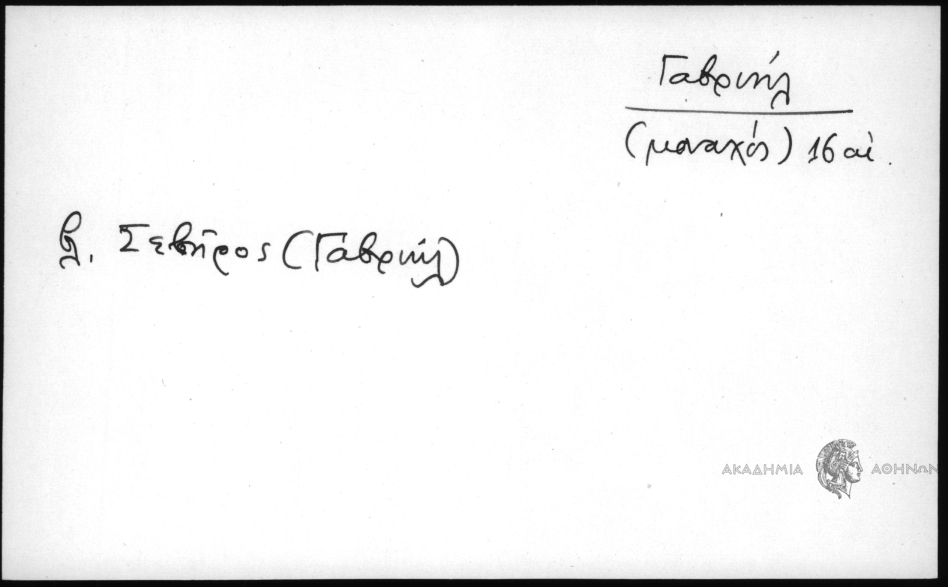 Γαβριήλ
(μοναχός) 16 αἰ.
βλ. Σεβῆρος (Γαβριήλ)
ΑΚΑΔΗΜΙΑ ΑΘΗΝΩΝ